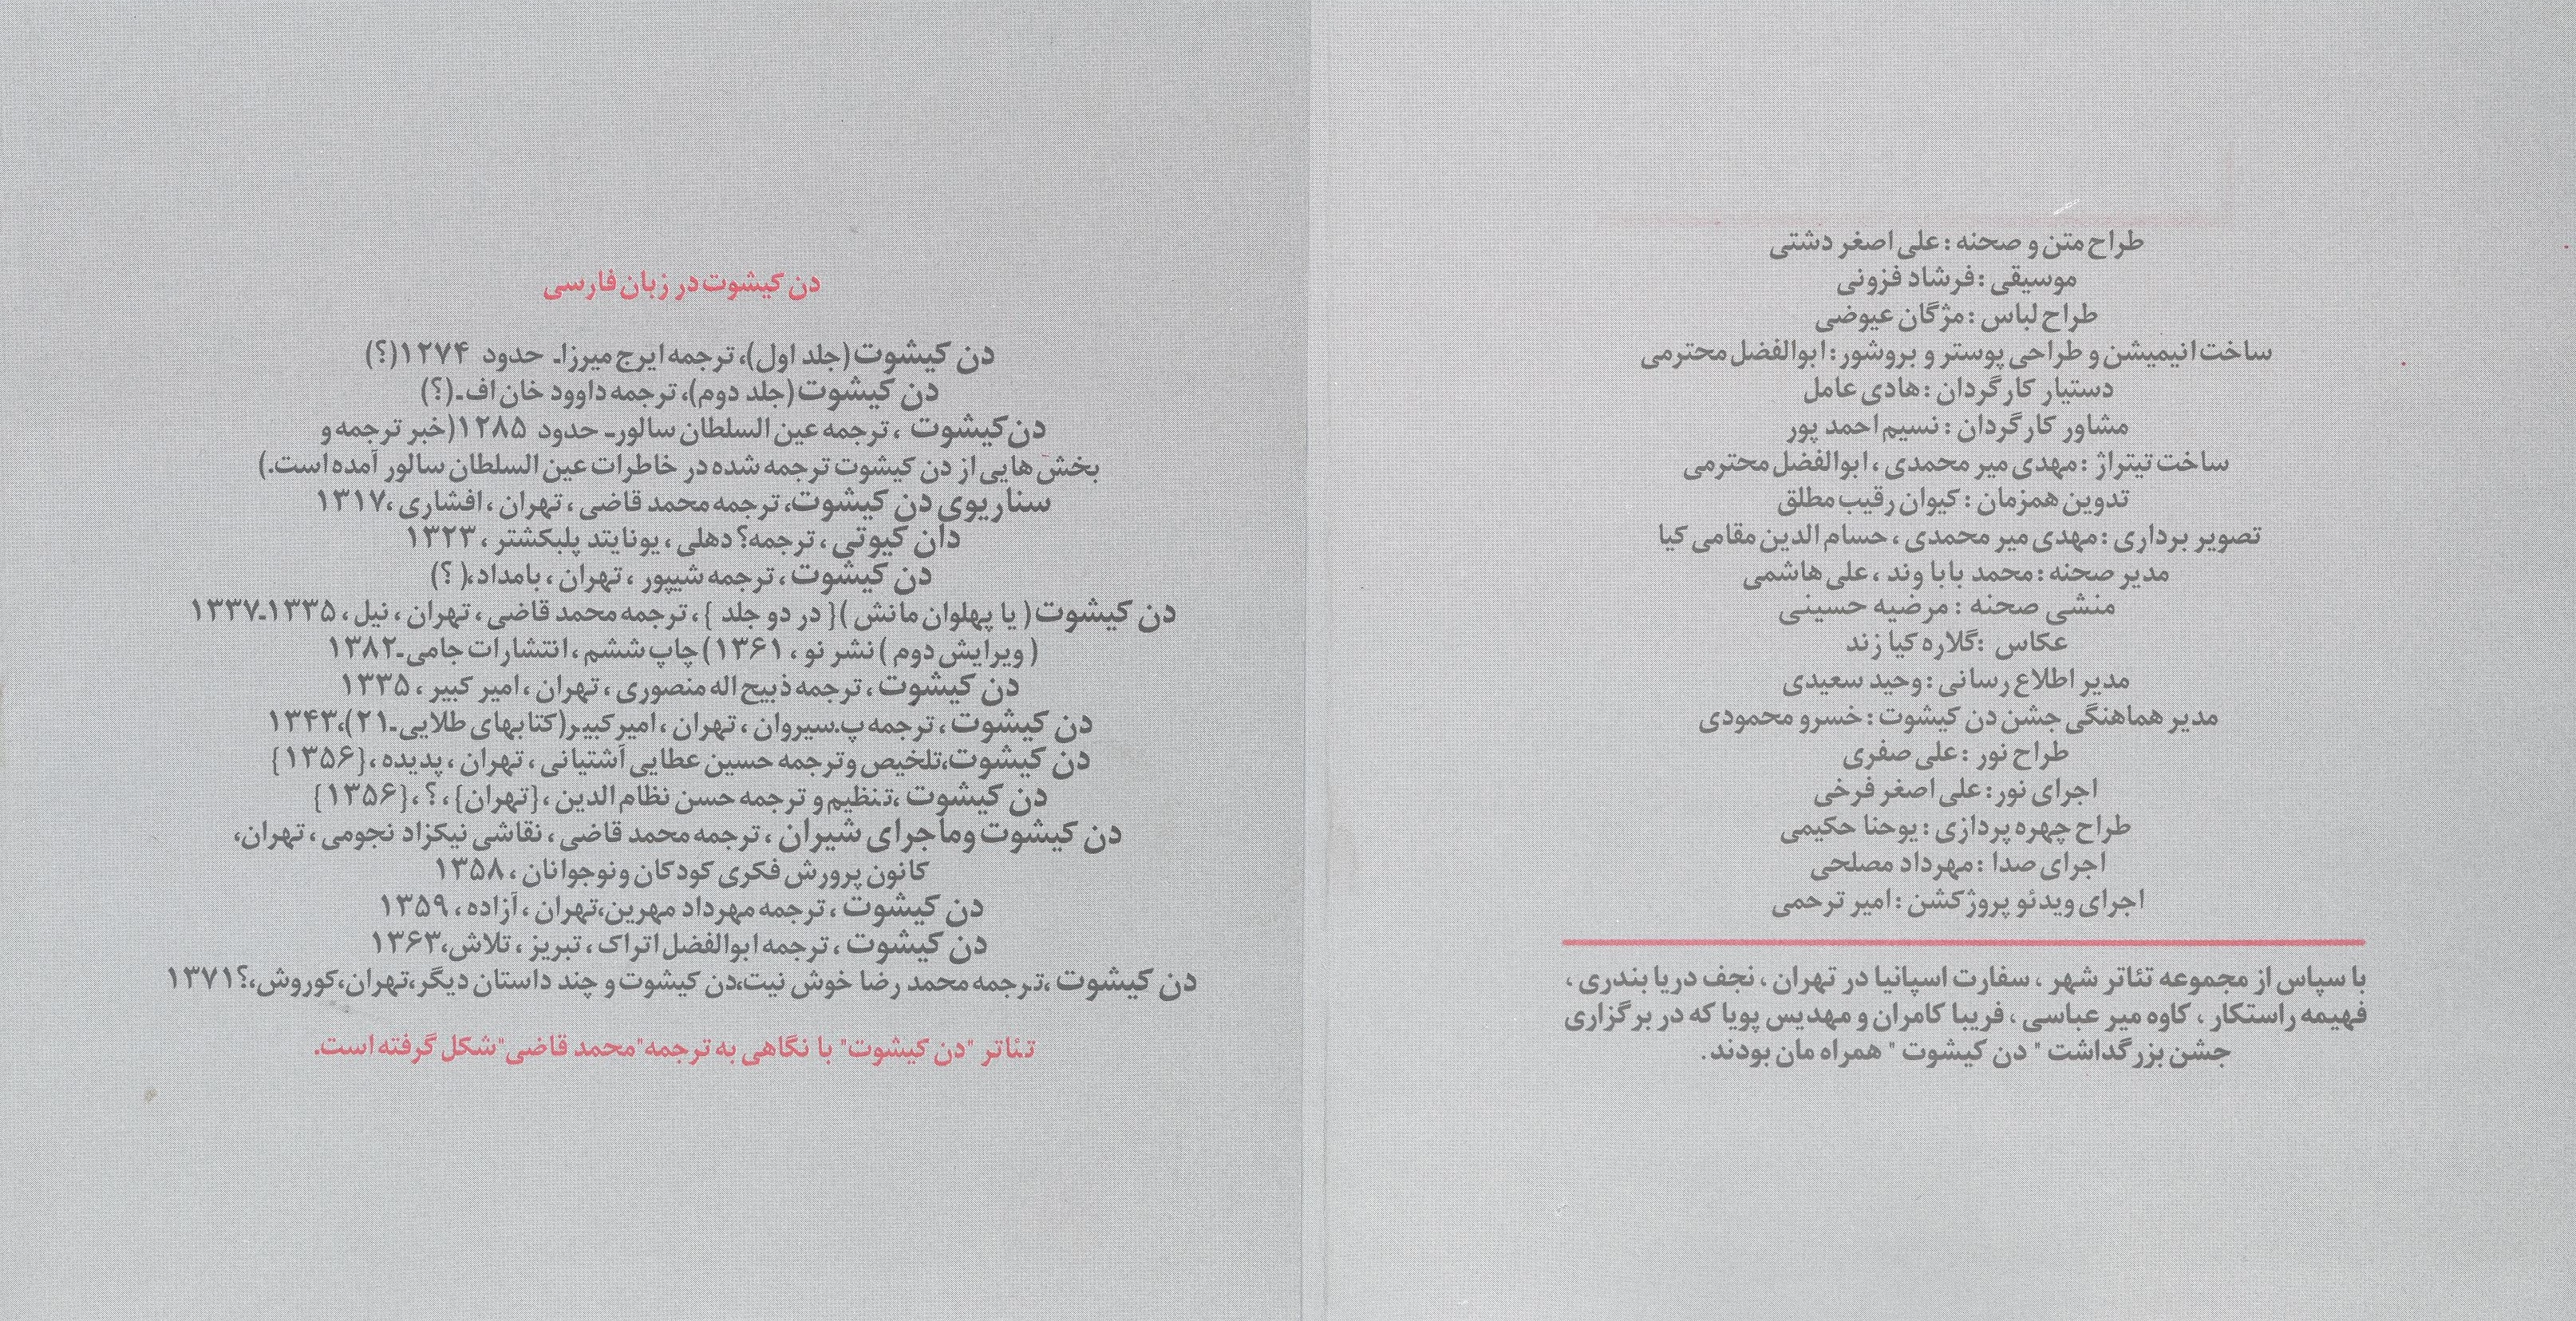 طراح متن و صحنه : علی اصغر دشتی
موسیقی : فرشاد فزونی
طراح لباس : مژگان عیوضی
ساخت انیمیشن و طراحی پوستر و بروشور : ابوالفضل محترمی
دستیار کارگردان : هادی عامل
مشاور کارگردان : نسیم احمد پور
ساخت تیتراژ : مهدی میر محمدی ، ابوالفضل محترمی
تدوین همزمان : کیوان رقیب مطلق
تصویر برداری : مهدی میر محمدی ، حسام الدین مقامی کیا
مدیر صحنه : محمد بابا وند ، علی هاشمی
منشی صحنه : مرضیه حسینی
عکاس :گلاره کیا زند
مدیر اطلاع رسانی : وحید سعیدی
مدیر هماهنگی جشن دن کیشوت : خسرو محمودی
طراح نور : علی صفری
اجرای نور : علی اصغر فرخی
طراح چهره پردازی : یوحنا حکیمی
اجرای صدا : مهرداد مصلحی
اجرای ویدئو پروژکشن : امیر ترحمی
با سپاس از مجموعه تئاتر شهر ، سفارت اسپانیا در تهران ، نجف دریا بندری ،
فهیمه راستکار ، کاوه میر عباسی ، فریبا کامران و مهدیس پویا که در برگزاری
جشن بزرگداشت " دن کیشوت " همراه مان بودند .
دن کیشوت در زبان فارسی
دن کیشوت (جلد اول)، ترجمه ایرج میرزا- حدود ۱۲۷۴(؟)
دن کیشوت (جلد دوم)، ترجمه داوود خان اف-(؟)
دن کیشوت ، ترجمه عین السلطان سالور- حدود ۱۲۸۵(خبر ترجمه و
بخش هایی از دن کیشوت ترجمه شده در خاطرات عین السلطان سالور آمده است.)
سناریوی دن کیشوت، ترجمه محمد قاضی ، تهران ، افشاری ،۱۳۱۷
دان کیوتی ، ترجمه؟ دهلی ، یونایتد پلبکشتر ، ۱۳۲۳
دن کیشوت ، ترجمه شیپور ، تهران ، بامداد،( ؟)
دن کیشوت ( یا پهلوان مانش ){ در دو جلد } ، ترجمه محمد قاضی ، تهران ، نیل ، ۱۳۳۵-۱۳۳۷
( ویرایش دوم ) نشر نو ، ۱۳۶۱) چاپ ششم ، انتشارات جامی-۱۳۸۲
دن کیشوت ، ترجمه ذبیح اله منصوری ، تهران ، امیر کبیر ، ۱۳۳۵
دن کیشوت ، ترجمه پ.سیروان ، تهران ، امیرکبیر(کتابهای طلایی-۲۱)،۱۳۴۳
دن کیشوت،تلخیص وترجمه حسین عطایی آشتیانی ، تهران ، پدیده ،{۱۳۵۶}
دن کیشوت ،تنظیم و ترجمه حسن نظام الدین ،{تهران}،؟ ،{۱۳۵۶}
دن کیشوت وماجرای شیران ، ترجمه محمد قاضی ، نقاشی نیکزاد نجومی ، تهران،
کانون پرورش فکری کودکان ونوجوانان ، ۱۳۵۸
دن کیشوت ، ترجمه مهرداد مهرین،تهران ، آزاده ، ۱۳۵۹
دن کیشوت ، ترجمه ابوالفضل اتراک ، تبریز ، تلاش،۱۳۶۳
دن کیشوت ،ترجمه محمد رضا خوش نیت،دن کیشوت و چند داستان دیگر،تهران،کوروش،؟۱۳۷۱
تئاتر "دن کیشوت" با نگاهی به ترجمه"محمد قاضی"شکل گرفته است.